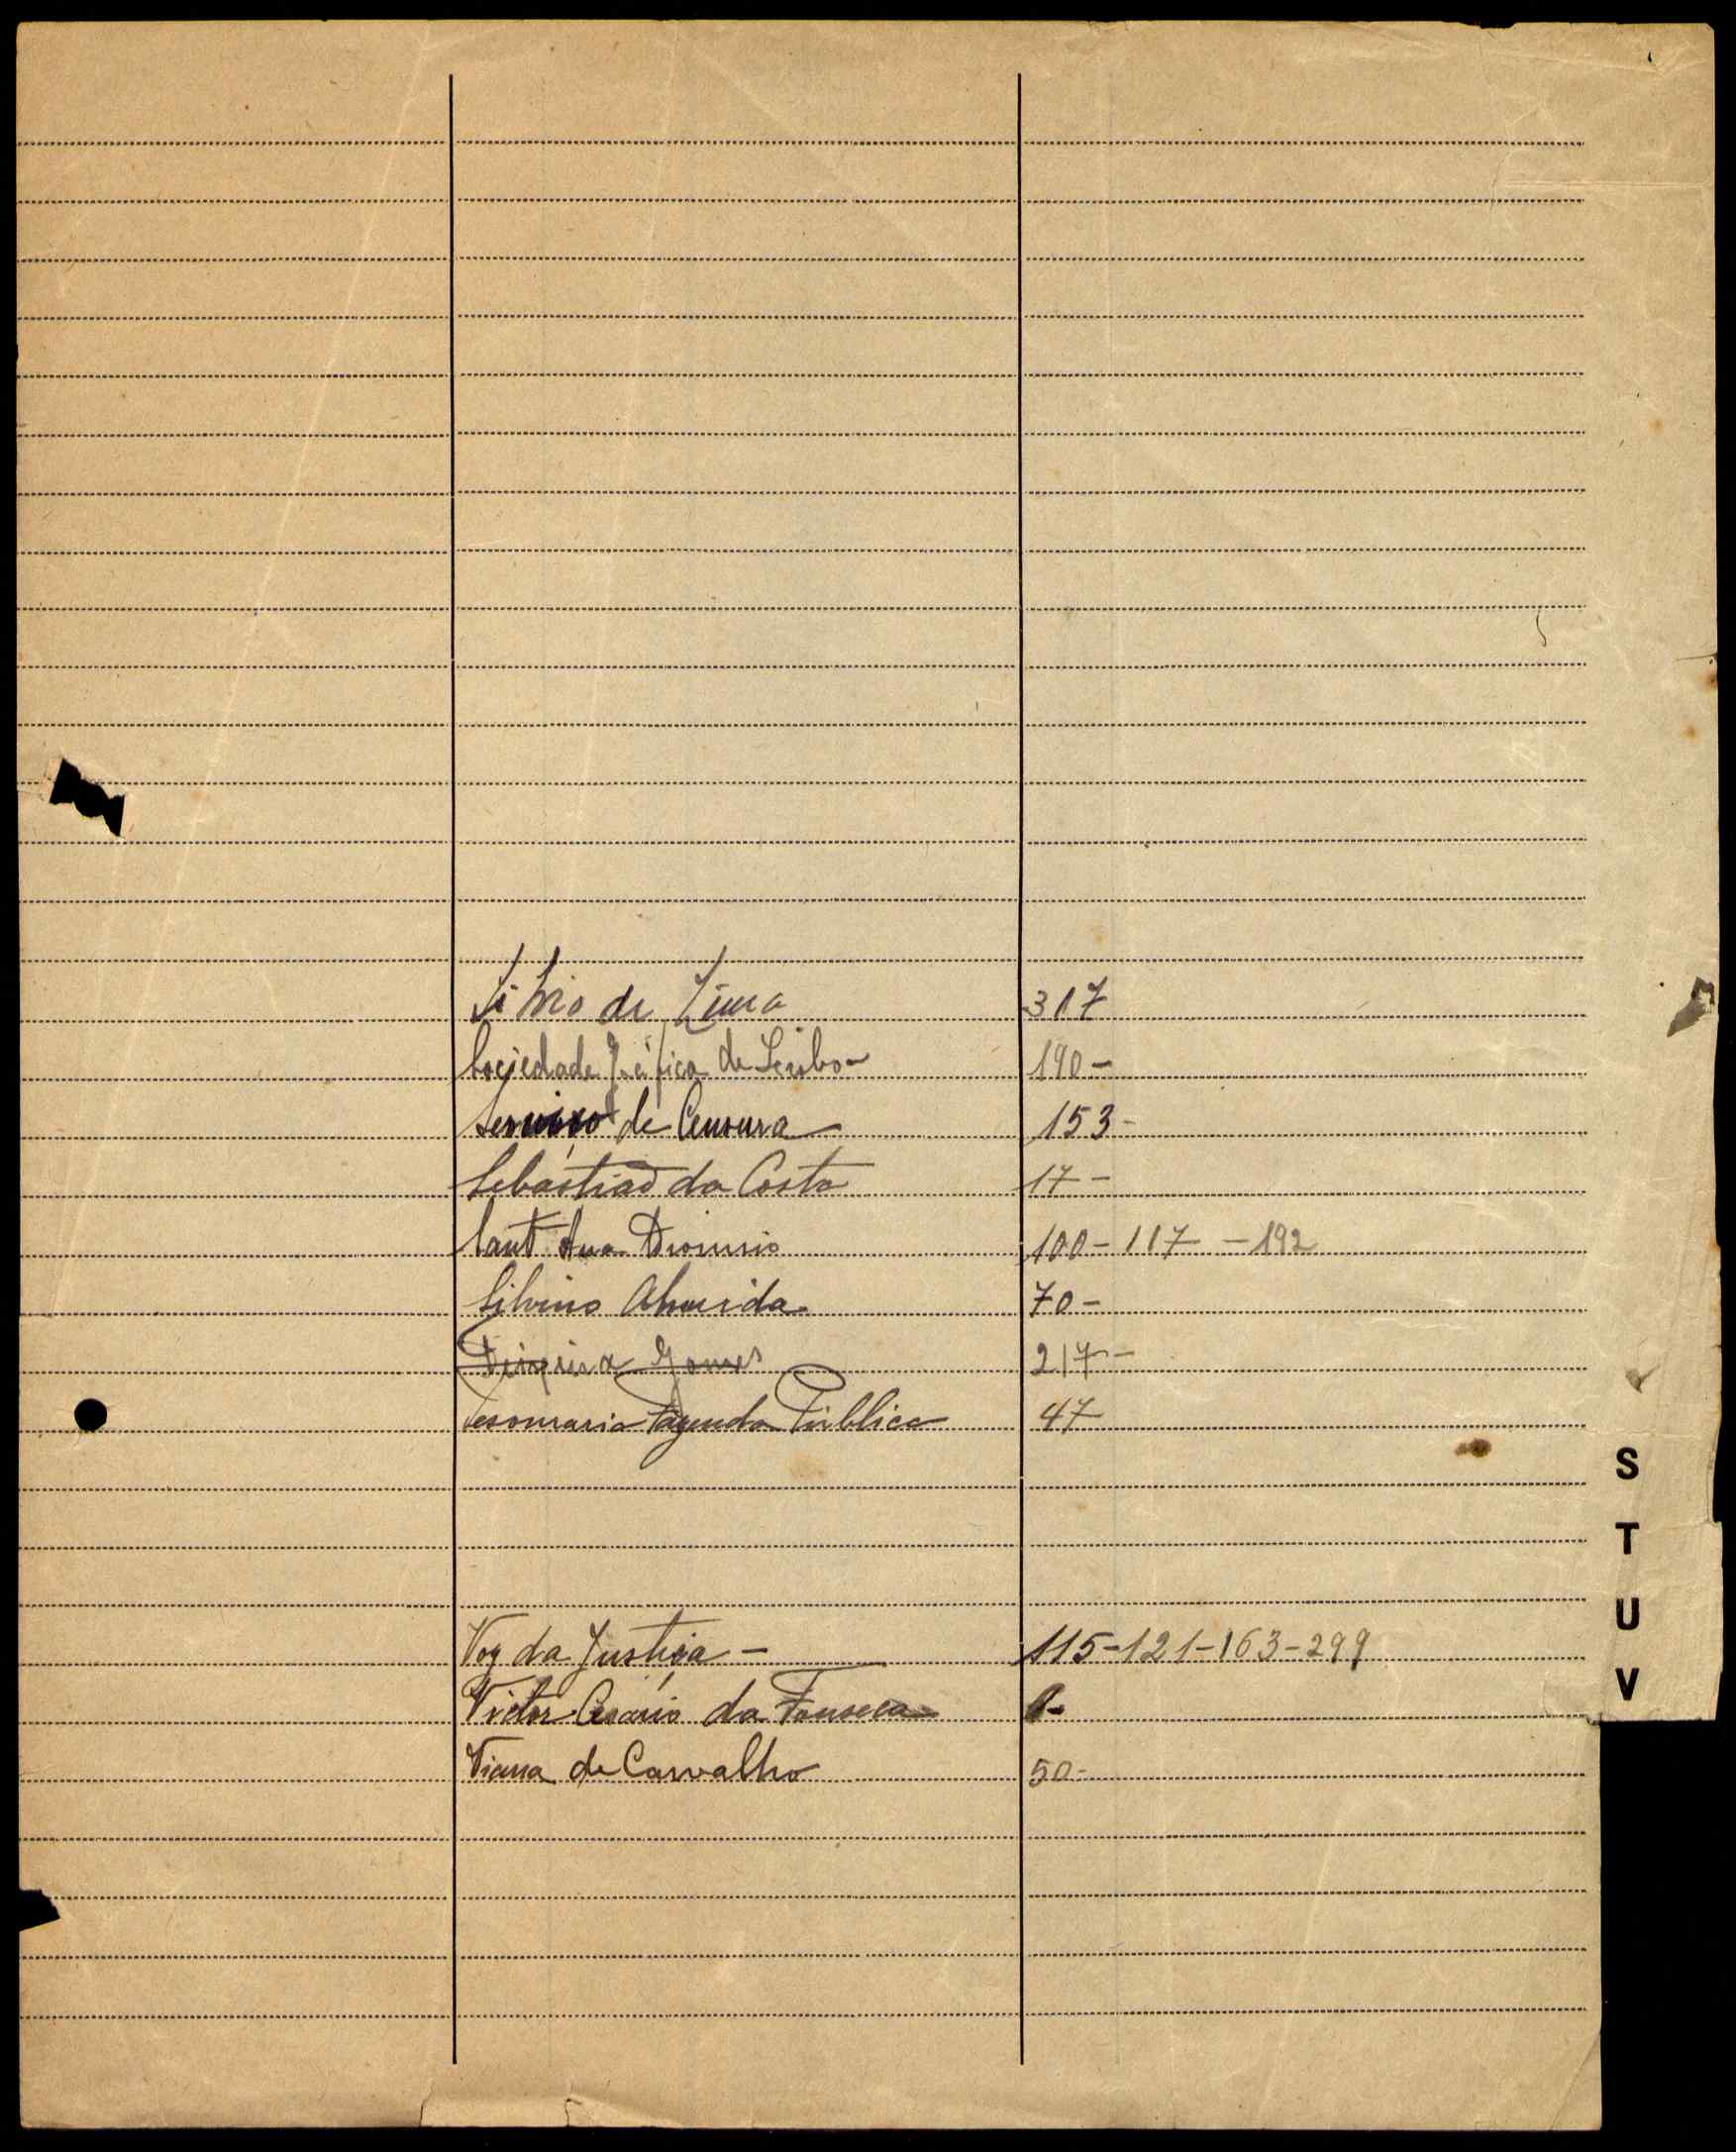 Sílvio de Lima 317
Sociedade Gráfica de Lisboa 190-
Serviço de Censura 153-
Sebastião da Costa 17-
Sant'Ana Dionisio 100-117-192
Silvino Almeida 70-
Gomes 217-
Tesouraria Fazenda Pública 47
S
T
U
Voz da Justiça - 115-121-163-299
V
Victor Cesário da Fonseca
Viana de Carvalho 50-